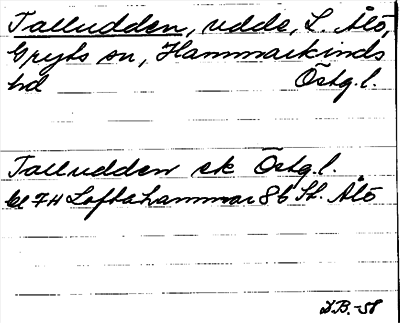 Talludden, udde, L. Ålö,
Gryts sn, Hammarkinds
hd Östg.l.
Talludden ek Östg.l.
bl 7H Loftahammar 8b St. Ålö
D.B.-58